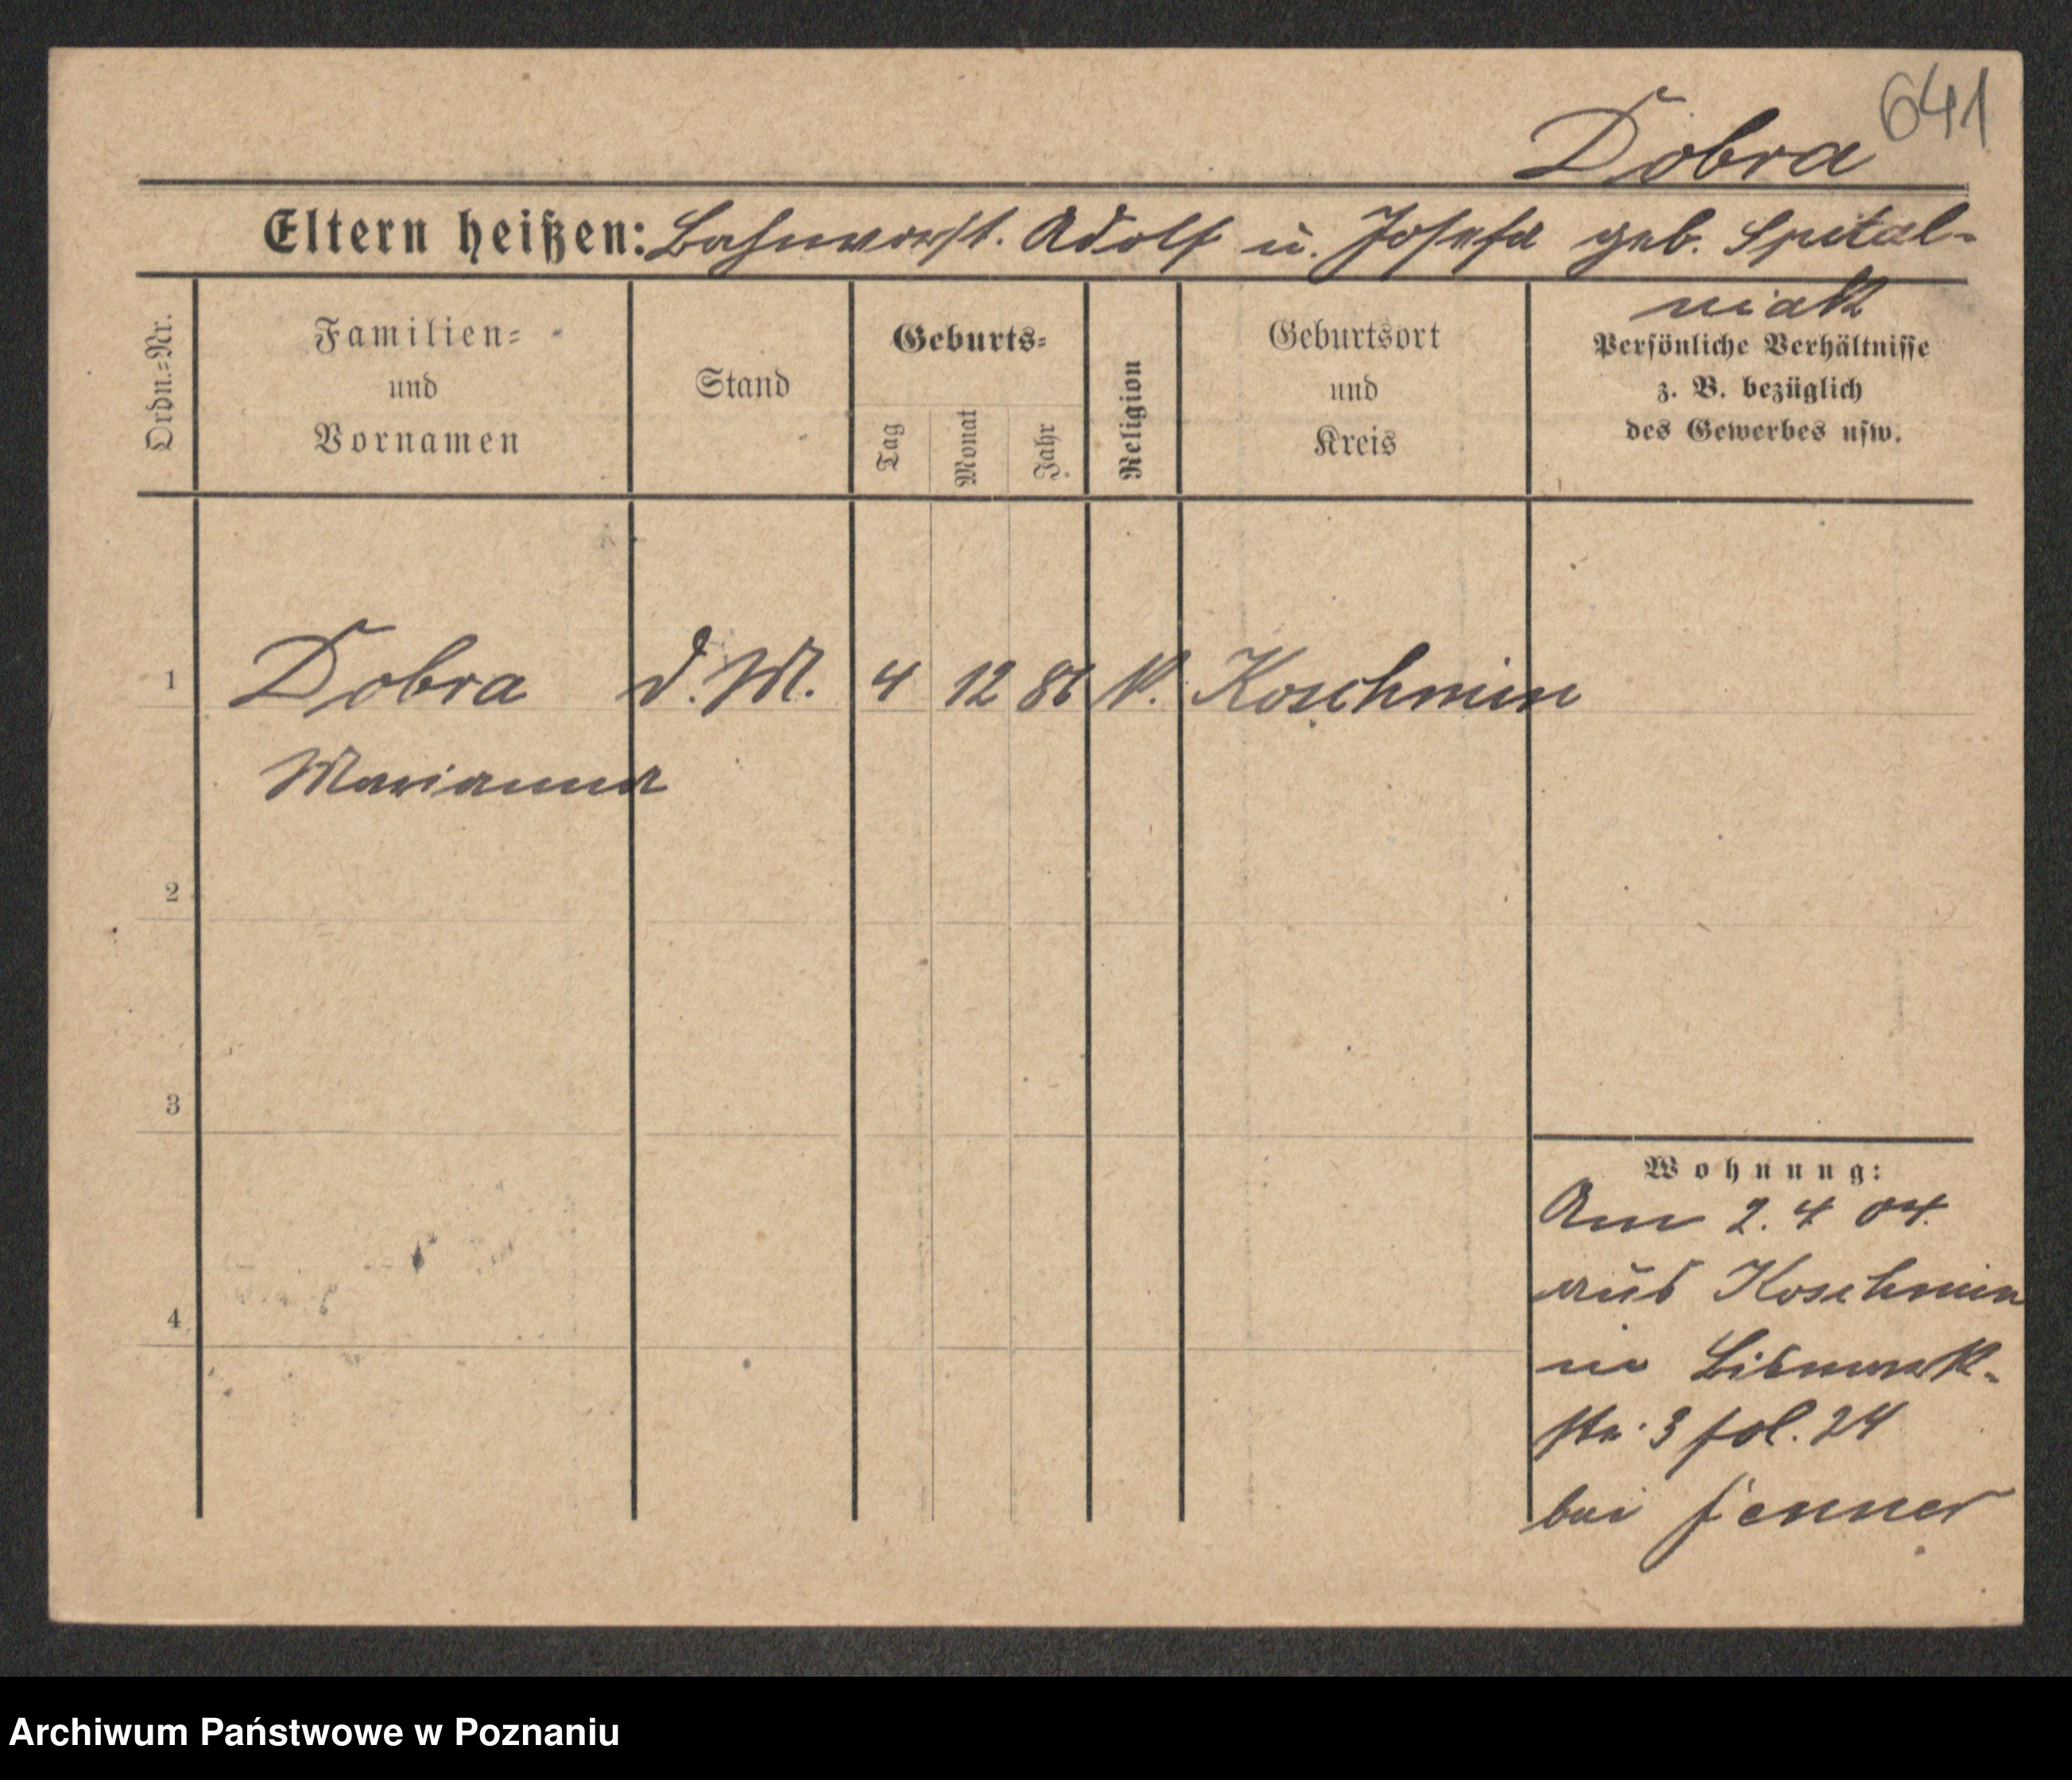 641
Dobra
Eltern heißen: Bahnvorst. Adolf u. Josefa geb. Spital-
niak
Ordn.=Nr.
Familien=
und
Vornamen
Stand
Geburts=
Tag
Monat
Jahr
Religion
Geburtsort
und
Kreis
Persönliche Verhältnisse
z. B. bezüglich
des Gewerbes usw.
1 Dobra d. M. 4 12 86 K. Koschmin
Marianna
2
3
4
Wohnung:
Am 2. 4 04.
aus Koschmin
in Bismark-
str. 3 fol. 24
bei Jenner
Archiwum Państwowe w Poznaniu